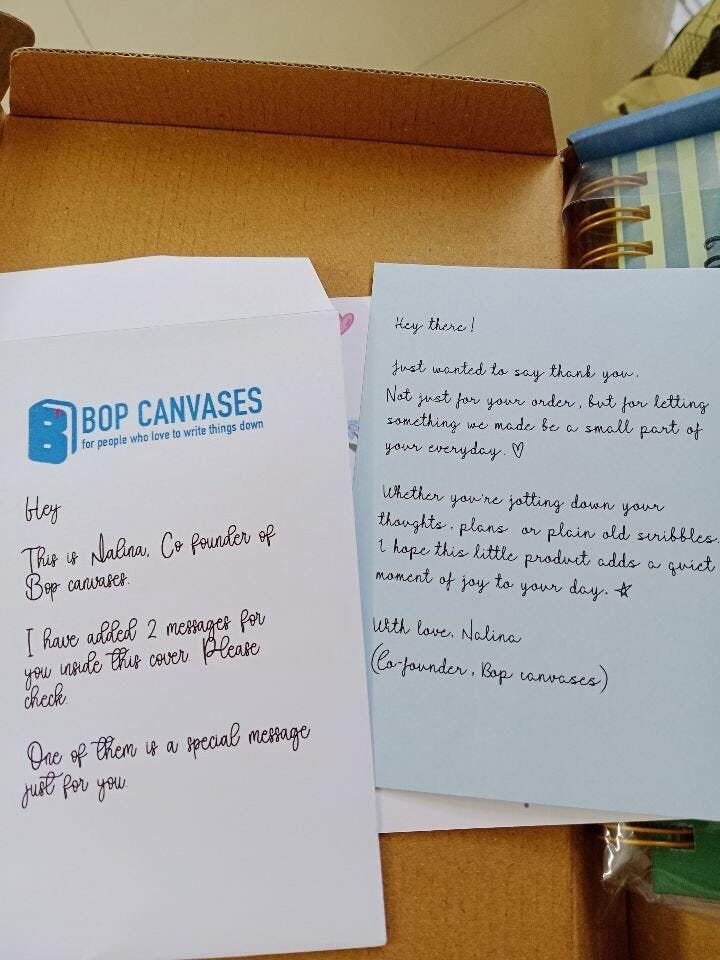 BOP CANVASES
for people who love to write things down
Hey
This is Nalina, Co founder of
Bop canvases.
I have added 2 messages for
you inside this cover. Please
check.
One of them is a special message
just for you.
Hey there!
Just wanted to say thank you.
Not just for your order, but for letting
something we made be a small part of
your everyday. ♡
Whether you're jotting down your
thoughts, plans or plain old scribbles.
I hope this little product adds a quiet
moment of joy to your day. ☆
With love, Nalina
(Co-founder, Bop canvases)